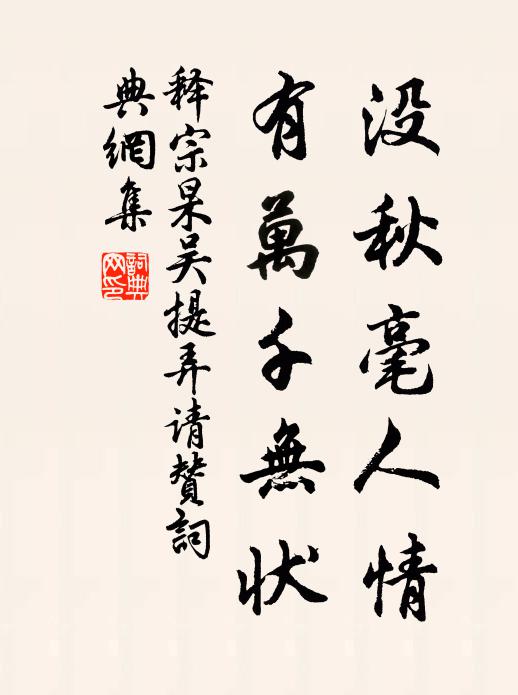 没秋毫人情
有萬千無状
释宗杲吴提弄请赞詞
典網集
詞典
网印